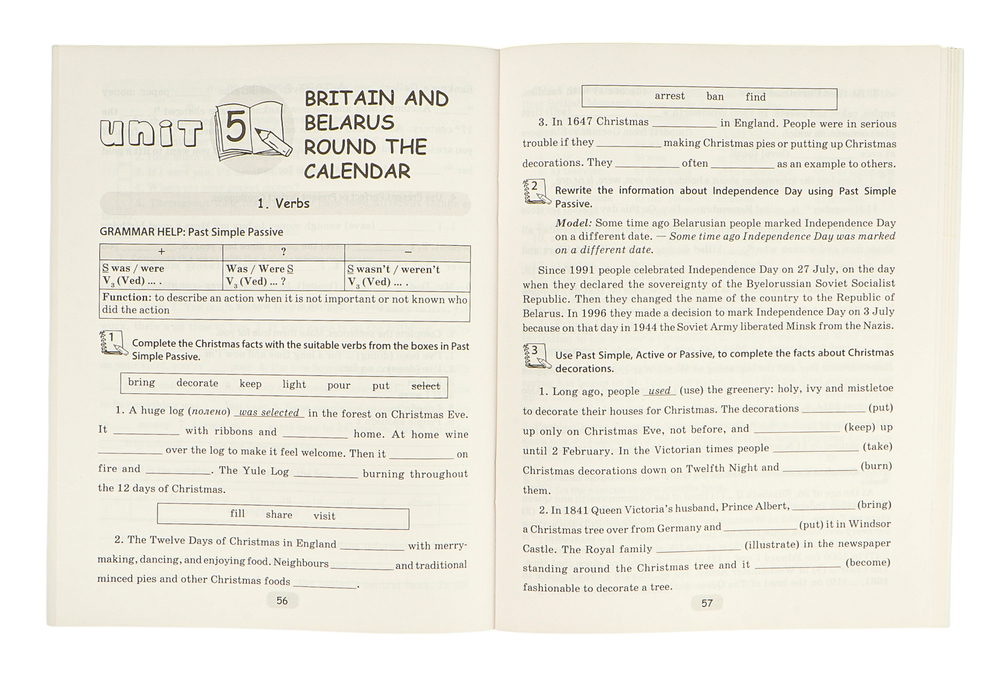 unit 5
BRITAIN AND
BELARUS
ROUND THE
CALENDAR
1. Verbs
GRAMMAR HELP: Past Simple Passive
+ ? –
S was / were Was / Were S S wasn't / weren't
V3 (Ved) ... . V3 (Ved) ... ? V3 (Ved) ... .
Function: to describe an action when it is not important or not known who
did the action
1 Complete the Christmas facts with the suitable verbs from the boxes in Past
Simple Passive.
bring decorate keep light pour put select
1. A huge log (полено) was selected in the forest on Christmas Eve.
It __________ with ribbons and __________ home. At home wine
__________ over the log to make it feel welcome. Then it __________ on
fire and __________. The Yule Log __________ burning throughout
the 12 days of Christmas.
fill share visit
2. The Twelve Days of Christmas in England __________ with merry-
making, dancing, and enjoying food. Neighbours __________ and traditional
minced pies and other Christmas foods __________.
56
arrest ban find
3. In 1647 Christmas __________ in England. People were in serious
trouble if they __________ making Christmas pies or putting up Christmas
decorations. They __________ often __________ as an example to others.
2 Rewrite the information about Independence Day using Past Simple
Passive.
Model: Some time ago Belarusian people marked Independence Day
on a different date. — Some time ago Independence Day was marked
on a different date.
Since 1991 people celebrated Independence Day on 27 July, on the day
when they declared the sovereignty of the Byelorussian Soviet Socialist
Republic. Then they changed the name of the country to the Republic of
Belarus. In 1996 they made a decision to mark Independence Day on 3 July
because on that day in 1944 the Soviet Army liberated Minsk from the Nazis.
3 Use Past Simple, Active or Passive, to complete the facts about Christmas
decorations.
1. Long ago, people used (use) the greenery: holy, ivy and mistletoe
to decorate their houses for Christmas. The decorations __________ (put)
up only on Christmas Eve, not before, and __________ (keep) up
until 2 February. In the Victorian times people __________ (take)
Christmas decorations down on Twelfth Night and __________ (burn)
them.
2. In 1841 Queen Victoria's husband, Prince Albert, __________ (bring)
a Christmas tree over from Germany and __________ (put) it in Windsor
Castle. The Royal family __________ (illustrate) in the newspaper
standing around the Christmas tree and it __________ (become)
fashionable to decorate a tree.
57